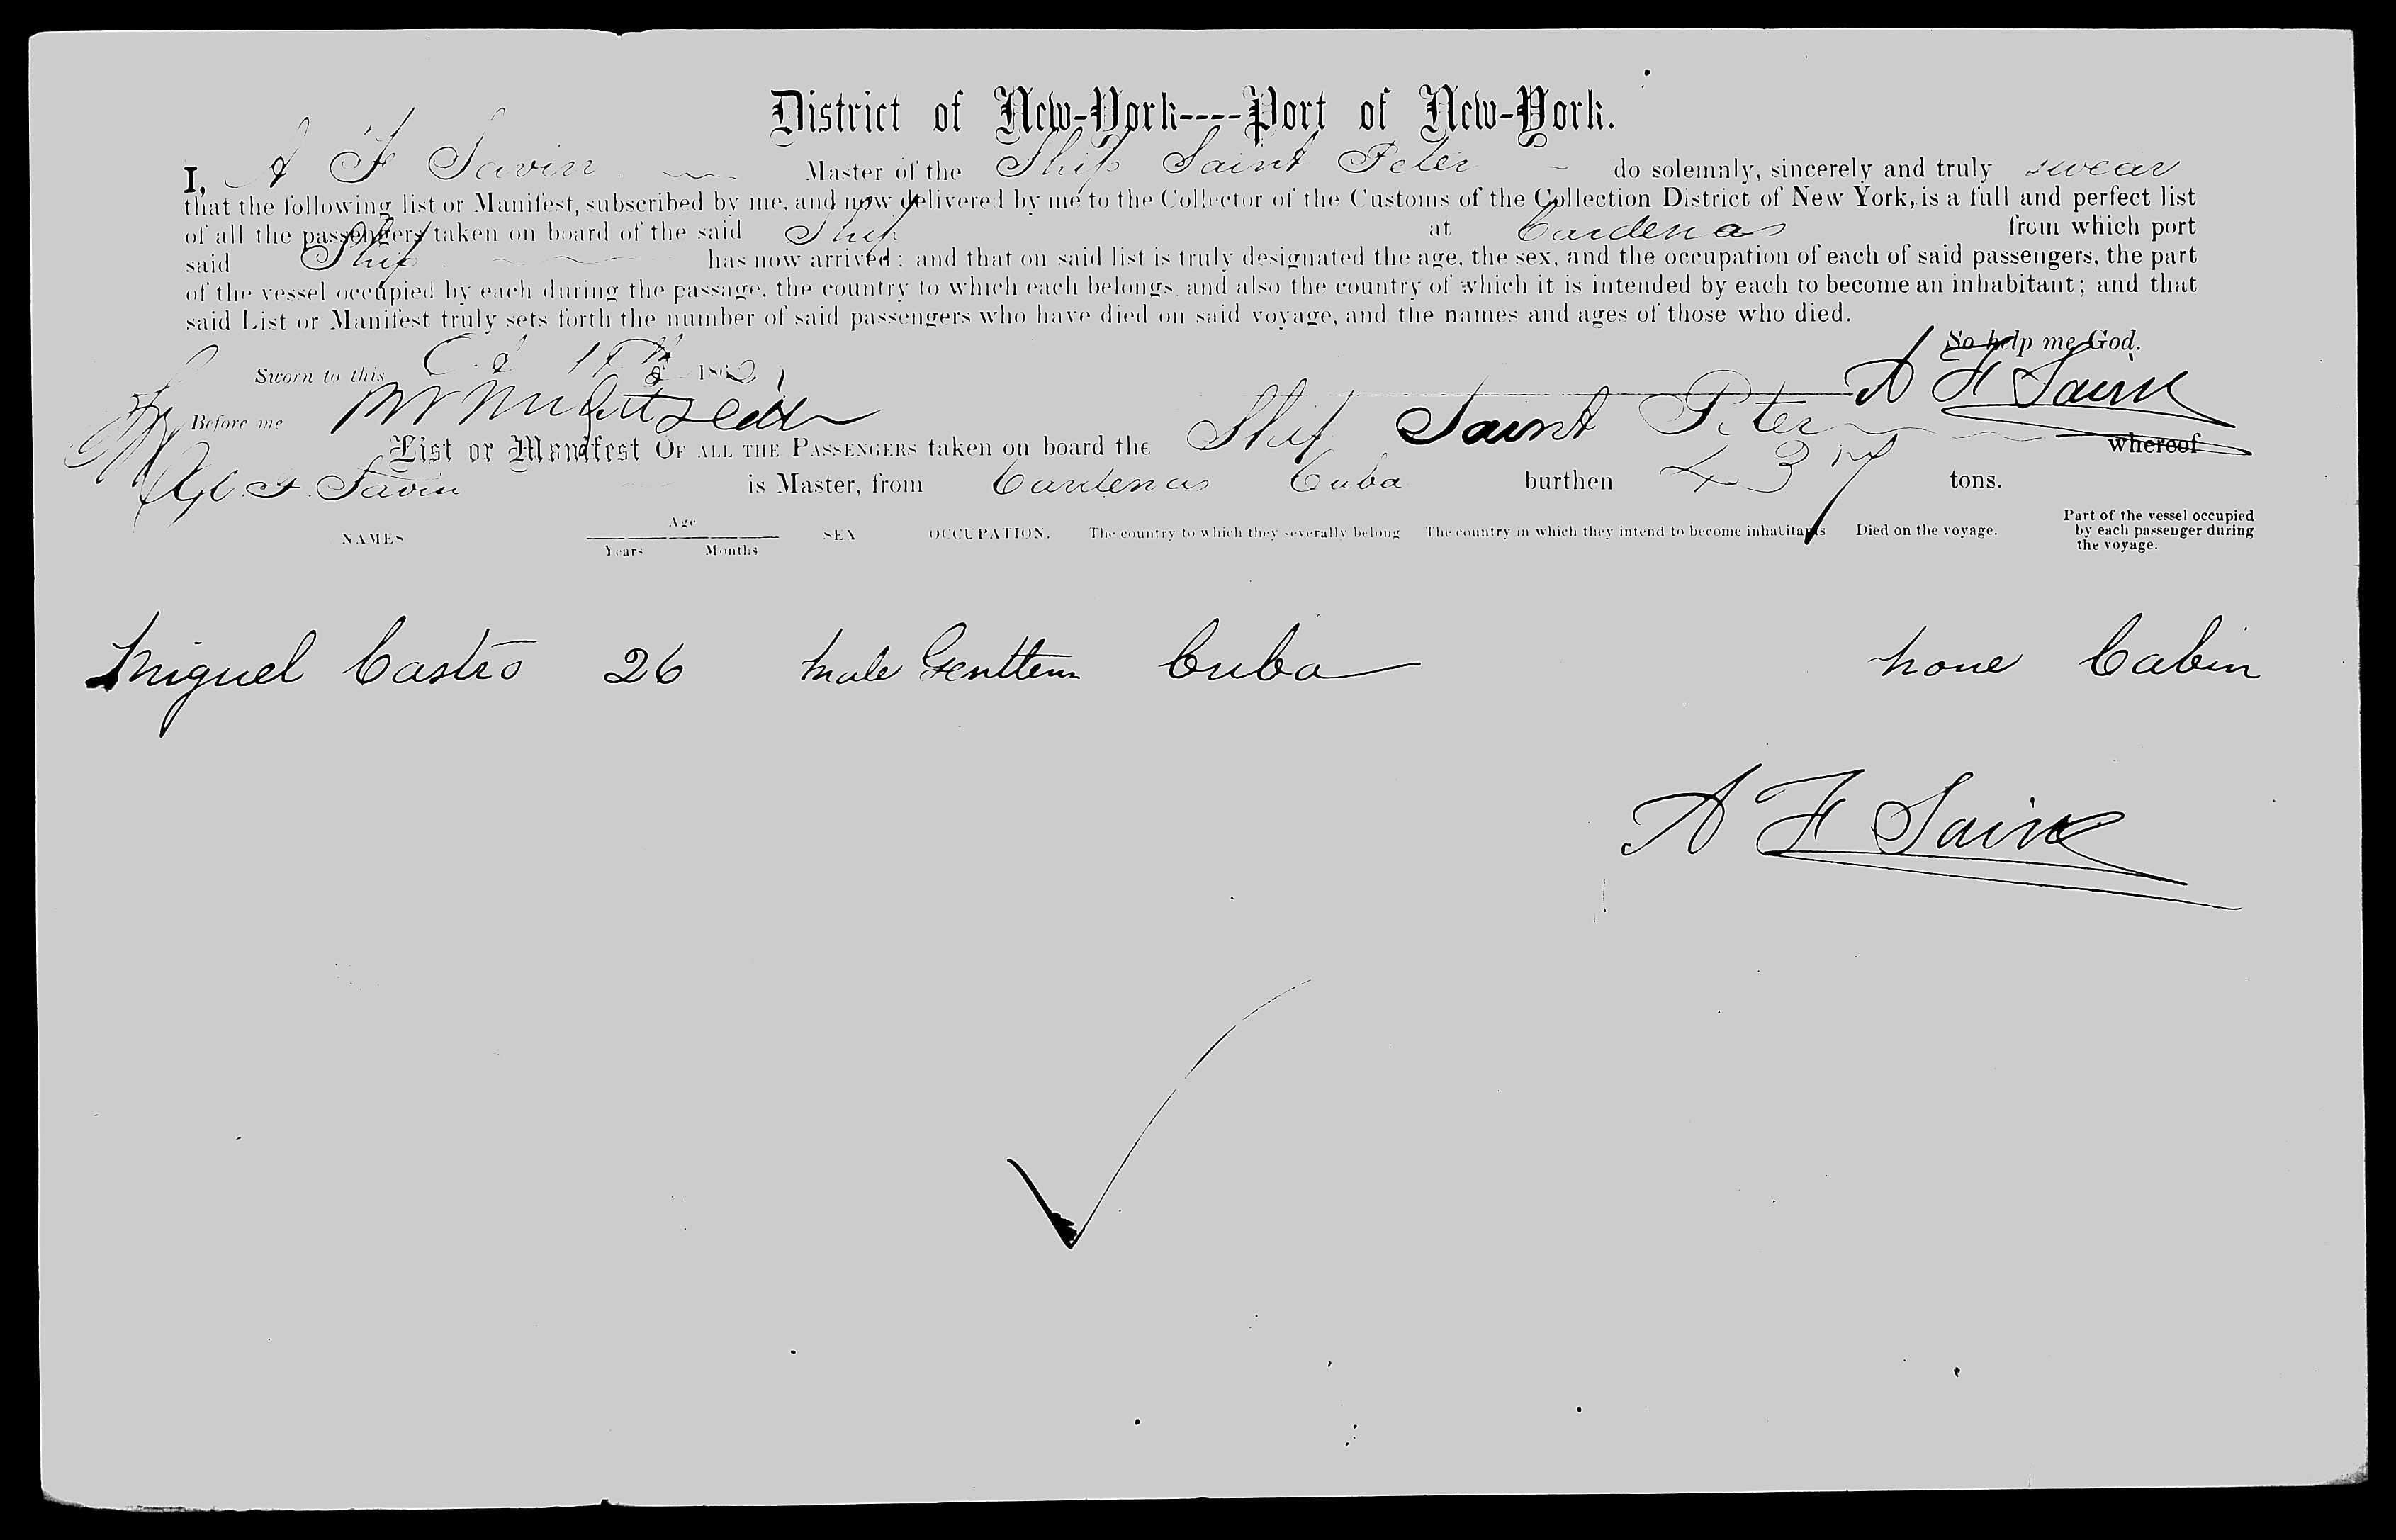 District of New-York----Port of New-York.
I, A F Savin Master of the Ship Saint Peter do solemnly, sincerely and truly swear
that the following list or Manifest, subscribed by me, and now delivered by me to the Collector of the Customs of the Collection District of New York, is a full and perfect list
of all the passengers taken on board of the said Ship at Cardenas from which port
said Ship has now arrived; and that on said list is truly designated the age, the sex, and the occupation of each of said passengers, the part
of the vessel occupied by each during the passage, the country to which each belongs, and also the country of which it is intended by each to become an inhabitant; and that
said List or Manifest truly sets forth the number of said passengers who have died on said voyage, and the names and ages of those who died.
So help me God.
Sworn to this 1862
A F Savin
Before me
List or Manifest OF ALL THE PASSENGERS taken on board the Ship Saint Peter whereof
Savin is Master, from Cardenas Cuba burthen 437 tons.
NAMES Age Years Months SEX OCCUPATION. The country to which they severally belong The country in which they intend to become inhabitants Died on the voyage. Part of the vessel occupied by each passenger during the voyage.
Miguel Castro 26 male Gentlem Cuba none Cabin
A F Savin